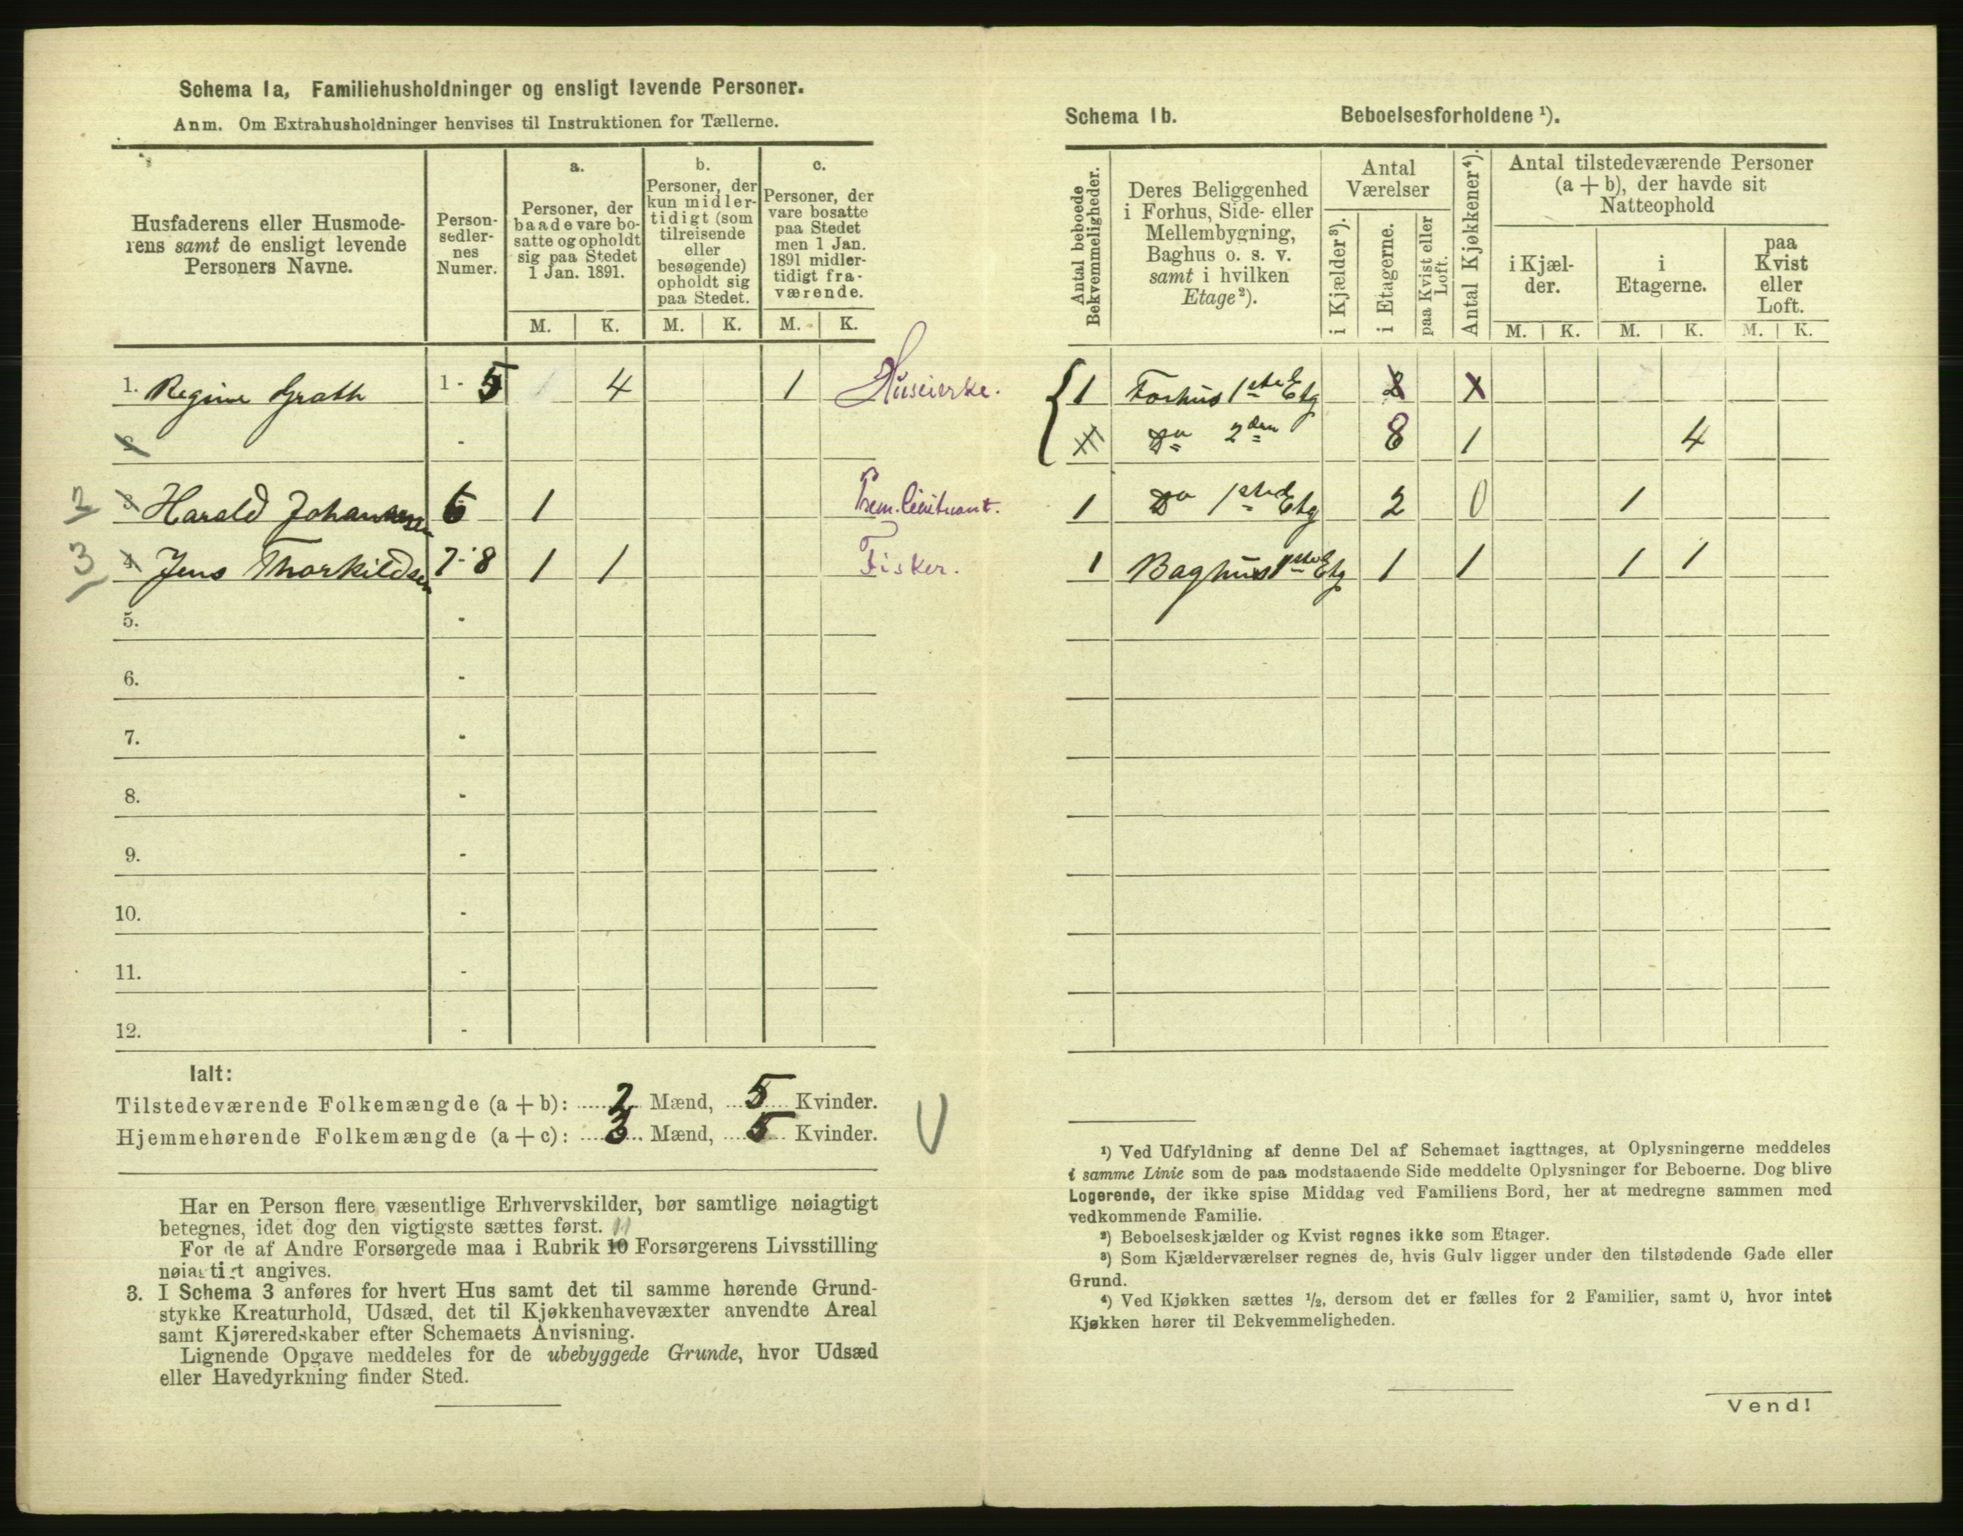 Schema 1a, Familiehusholdninger og ensligt levende Personer.
Anm. Om Extrahusholdninger henvises til Instruktionen for Tællerne.
Husfaderens eller Husmode-
rens samt de ensligt levende
Personers Navne.
Person-
sedler-
nes
Numer.
a.
Personer, der
baade vare bo-
satte og opholdt
sig paa Stedet
1 Jan. 1891.
b.
Personer, der
kun midler-
tidigt (som
tilreisende
eller
besøgende)
opholdt sig
paa Stedet.
c.
Personer, der
vare bosatte
paa Stedet
men 1 Jan.
1891 midler-
tidigt fra-
værende.
M. K. M. K. M. K.
1. Regine Grøth 1 - 5 4 1 Huseierske.
2 -
2 3 Harald Johannesen 6 1 Prem. Lieutnant.
3 4 Jens Thorkildsen 7 - 8 1 1 Fisker.
5. -
6. -
7. -
8. -
9. -
10. -
11. -
12. -
Ialt:
Tilstedeværende Folkemængde (a + b): 2 Mænd, 5 Kvinder.
Hjemmehørende Folkemængde (a + c): 3 Mænd, 5 Kvinder.
Har en Person flere væsentlige Erhvervskilder, bør samtlige nøiagtigt
betegnes, idet dog den vigtigste sættes først. 11
For de af Andre Forsørgede maa i Rubrik 10 Forsørgerens Livsstilling
nøiagtigt angives.
3. I Schema 3 anføres for hvert Hus samt det til samme hørende Grund-
stykke Kreaturhold, Udsæd, det til Kjøkkenhavevæxter anvendte Areal
samt Kjøreredskaber efter Schemaets Anvisning.
Lignende Opgave meddeles for de ubebyggede Grunde, hvor Udsæd
eller Havedyrkning finder Sted.
Schema 1b. Beboelsesforholdene ¹).
Antal beboede
Bekvemmeligheder.
Deres Beliggenhed
i Forhus, Side- eller
Mellembygning,
Baghus o. s. v.
samt i hvilken
Etage²).
Antal
Værelser
i Kjælder³).
i Etagerne.
paa Kvist eller
Loft.
Antal Kjøkkener⁴).
Antal tilstedeværende Personer
(a + b), der havde sit
Natteophold
i Kjæl-
der.
i
Etagerne.
paa
Kvist
eller
Loft.
M. K. M. K. M. K.
1 Forhus 1ste Etg 2 x
Do 2den 8 1 4
1 Do 1ste Etg 2 0 1
1 Baghus 1ste Etg 1 1 1 1
¹) Ved Udfyldning af denne Del af Schemaet iagttages, at Oplysningerne meddeles
i samme Linie som de paa modstaaende Side meddelte Oplysninger for Beboerne. Dog blive
Logerende, der ikke spise Middag ved Familiens Bord, her at medregne sammen med
vedkommende Familie.
²) Beboelseskjælder og Kvist regnes ikke som Etager.
³) Som Kjælderværelser regnes de, hvis Gulv ligger under den tilstødende Gade eller
Grund.
⁴) Ved Kjøkken sættes ½, dersom det er fælles for 2 Familier, samt 0, hvor intet
Kjøkken hører til Bekvemmeligheden.
Vend!